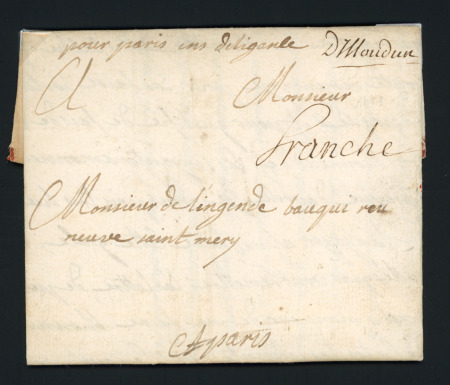 pour paris ens diligante
D'Moudun
A Monsieur
franche
Monsieur de lingende bauqui reu
neuve saint mery
A paris